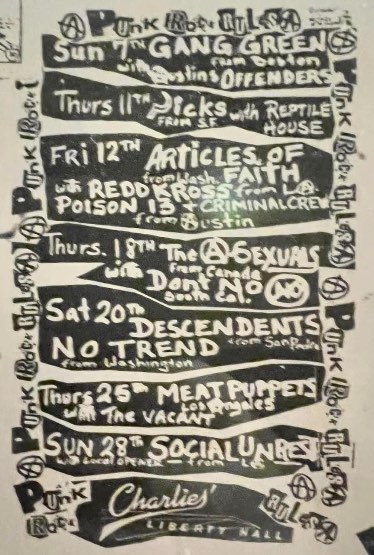 PUNK ROCK RULES
Sun 7TH GANG GREEN
from Boston
with Austins OFFENDERS
Thurs 11TH Dicks with REPTILE
FRIM S.F. HOUSE
FRI 12TH ARTICLES OF
from Wash. FAITH
with REDD KROSS from L.A.
POISON 13 + CRIMINAL CREW
from Austin
Thurs. 18TH The A-SEXUALS
from Canada
with Dont NO NO
South Cal.
Sat 20th DESCENDENTS
NO TREND from San Pedro
from Washington
Thurs 25th MEAT PUPPETS
Los Angeles
with The VACANT
SUN 28TH SOCIAL UNREST
with local opener - from
Charlies'
LIBERTY HALL
PUNK ROCK
RULES
PUNK ROCK RULES
PUNK ROCK RULES